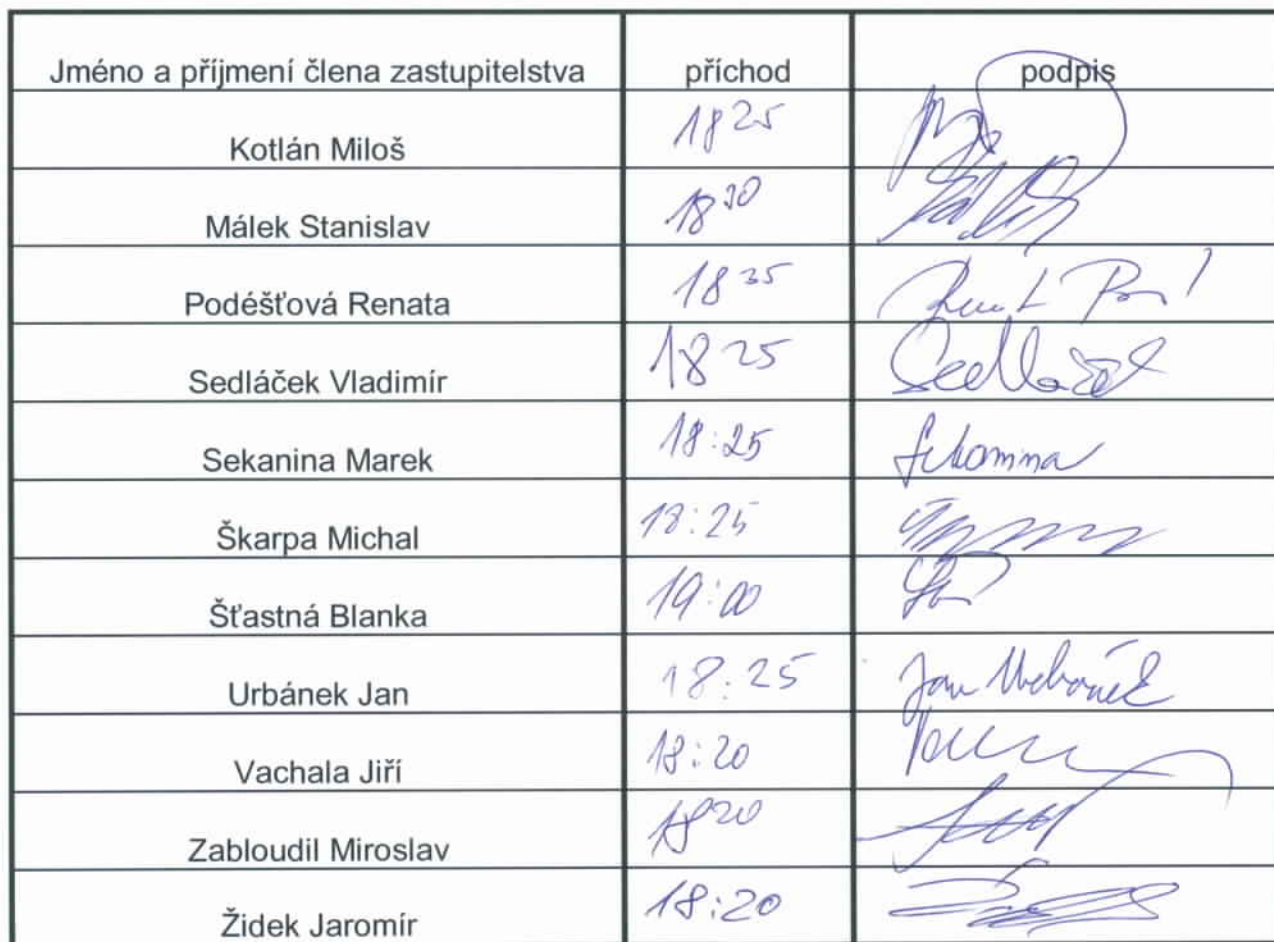 Jméno a příjmení člena zastupitelstva příchod podpis
Kotlán Miloš 18 25
Málek Stanislav 18 30
Podéšťová Renata 18 35
Sedláček Vladimír 18 25 Sedláček
Sekanina Marek 18:25 Sekanina
Škarpa Michal 18:25
Šťastná Blanka 19:00
Urbánek Jan 18:25 Jan Urbánek
Vachala Jiří 18:20
Zabloudil Miroslav 18 20
Židek Jaromír 18:20